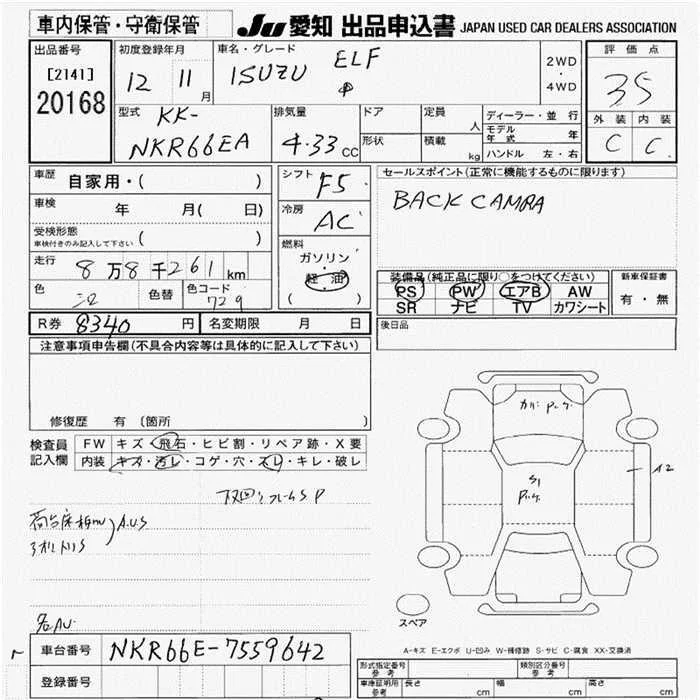 車内保管・守衛保管
JU 愛知 出品申込書 JAPAN USED CAR DEALERS ASSOCIATION
出品番号
[2141]
20168
初度登録年月
12 11 月
車名・グレード
ISUZU ELF
2WD
・
4WD
評価点
3.5
外装 内装
C C
型式
KK-
NKR66EA
排気量
4.33 CC
ドア
形状
定員 人
積載 kg
ディーラー・並行
モデル年式 年
ハンドル 左・右
車歴 自家用・( )
車検 年 月( 日)
受検形態
車検付きのみ記入して下さい ( )
走行 8万8千261 km
色 色替 色コード
729
シフト F5
冷房 AC
燃料
ガソリン
軽油
( )
セールスポイント(正常に機能するものに限ります)
BACK CAMRA
装備品(純正品に限り○をつけてください)
PS PW エアB AW
SR ナビ TV カワシート
新車保証書
有・無
後日品
R券 8340 円 名変期限 月 日
注意事項申告欄(不具合内容等は具体的に記入して下さい)
修復歴 有 (箇所 )
検査員
記入欄
FW キズ・飛石・ヒビ割・リペア跡・X要
内装 キズ・汚レ・コゲ・穴・スレ・キレ・破レ
A.U.S
S1
A2
スペア
A-キズ E-エクボ U-凹み W-補修跡 S-サビ C-腐食 XX-交換済
車台番号 NKR66E-7559642
登録番号
形式指定番号
参考
類別区分番号
参考
車庫証明用
参考
長さ cm 幅 cm 高さ cm